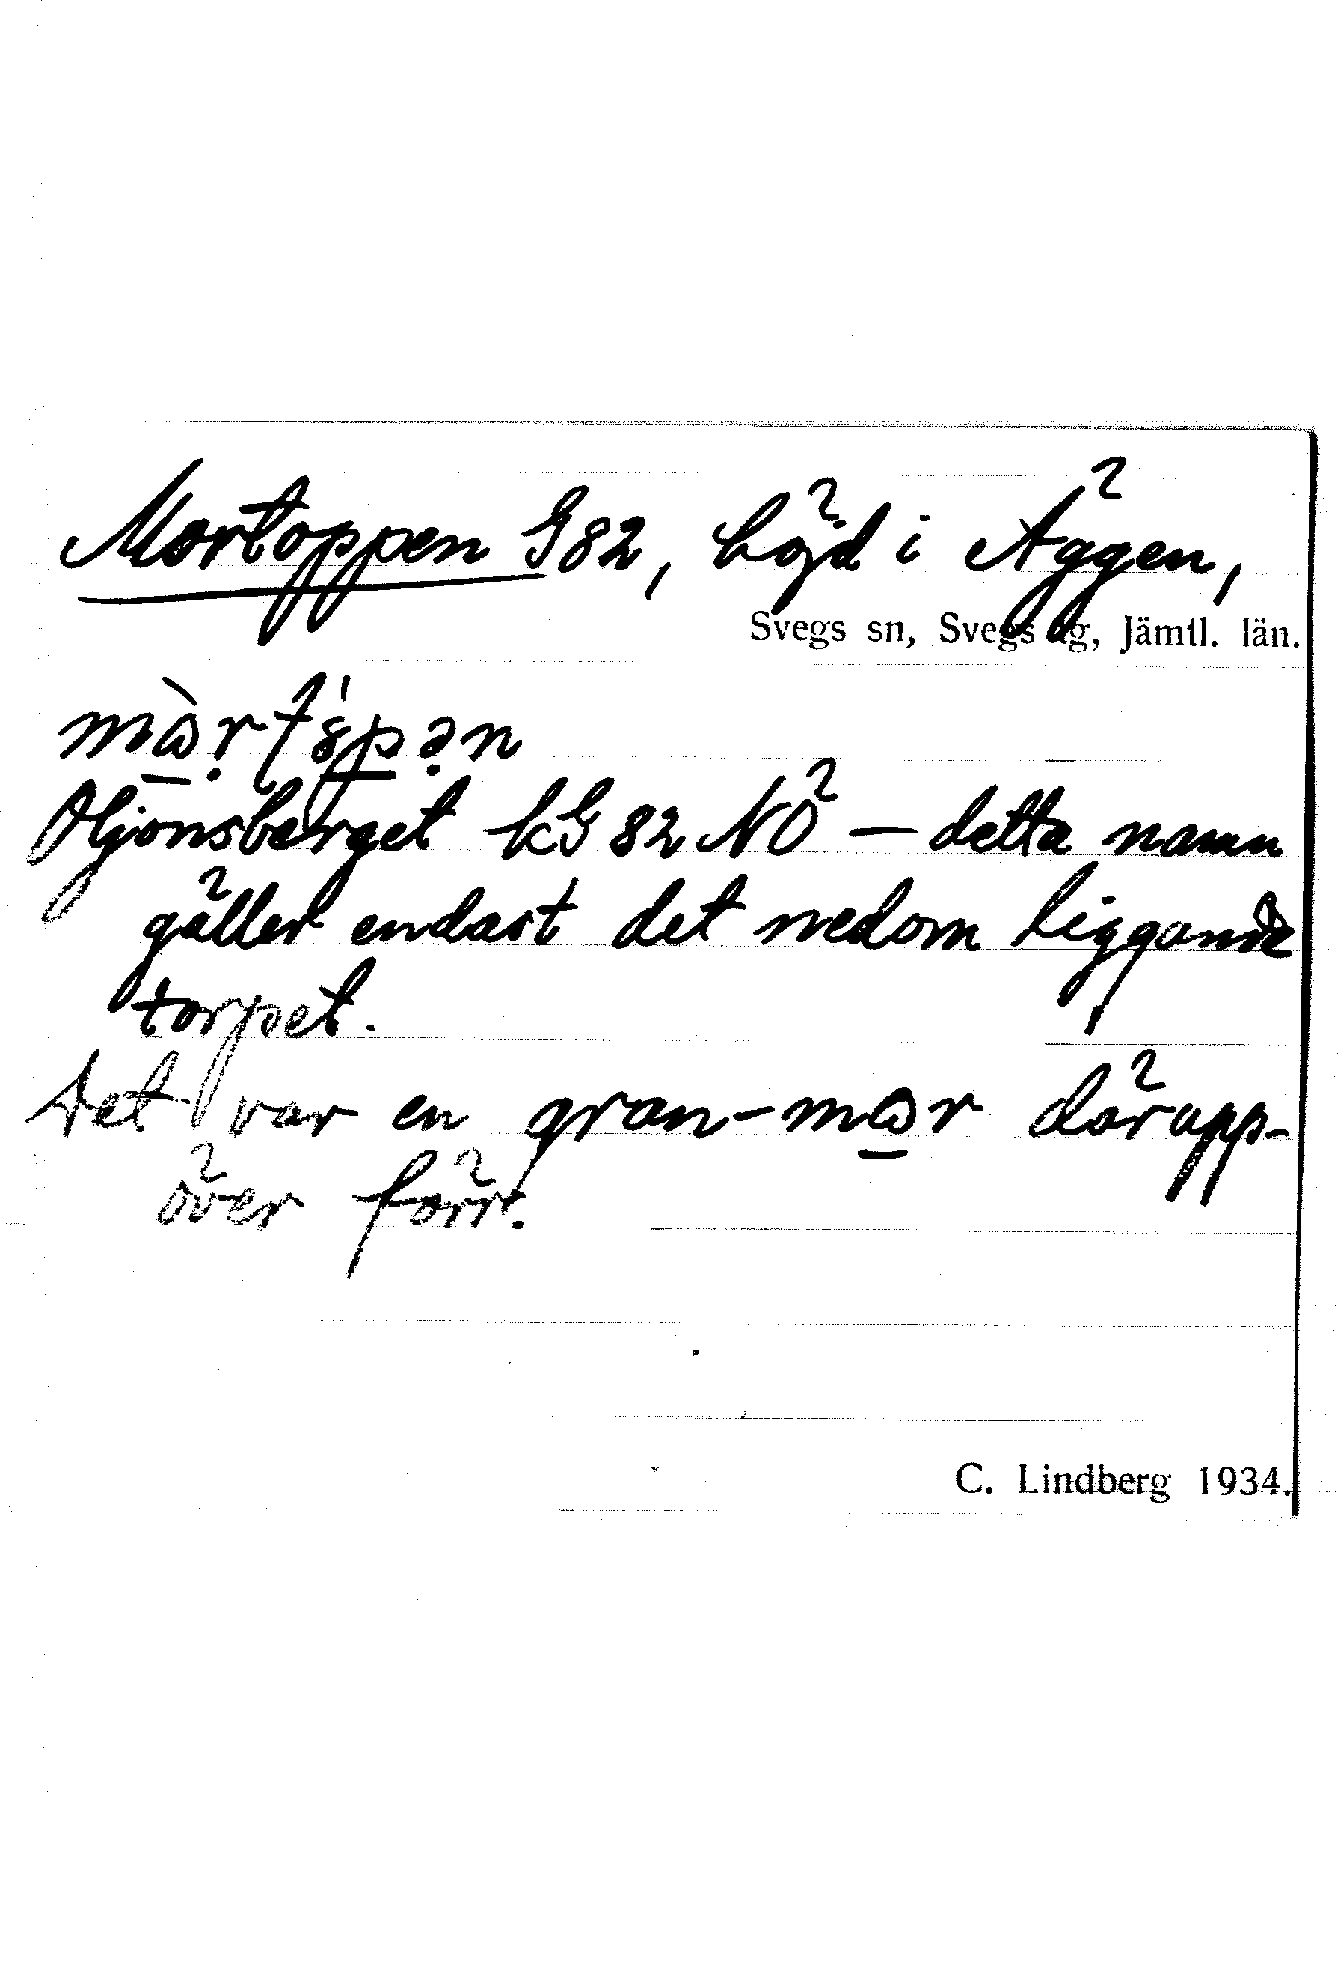 Mortoppen G82, höjd i Äggen,
Svegs sn, Svegs tg, Jämtl. län.
Oljonsberget kG 82 NÖ — detta namn
gäller endast det nedom liggande
torpet.
Det var en gran-mɷr därupp-
över förr.
C. Lindberg 1934.